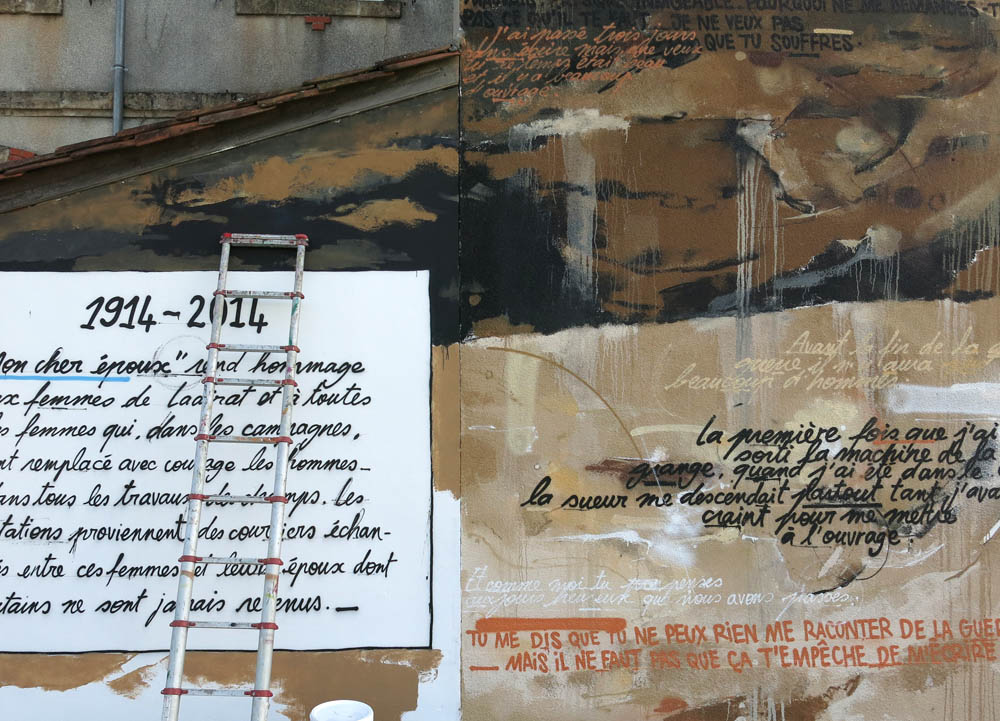 1914-2014
on cher époux" rend hommage
x femmes de Laairat et à toutes
s femmes qui, dans les campagnes,
nt remplacé avec courage les hommes
ans tous les travaux des champs. Les
tations proviennent des courriers échan-
és entre ces femmes et leurs époux dont
tains ne sont jamais revenus.
POURQUOI NE ME DEMANDES-T
PAS CE QU'IL TE FAUT. JE NE VEUX PAS
QUE TU SOUFFRES.
J'ai passé trois jours
mais que veux
tu le temps était beau
et il y a beaucoup
d'ouvrage.
Avant la fin de la g
guerre il n'y aura
beaucoup d'hommes
La première fois que j'ai
sorti la machine de la
grange, quand j'ai été dans le
la sueur me descendait partout tant j'ava
craint pour me mettre
à l'ouvrage.
Et comme moi tu penses
toujours heureux que nous avons passés.
TU ME DIS QUE TU NE PEUX RIEN ME RACONTER DE LA GUE
— MAIS IL NE FAUT PAS QUE ÇA T'EMPÊCHE DE M'ÉCRIRE